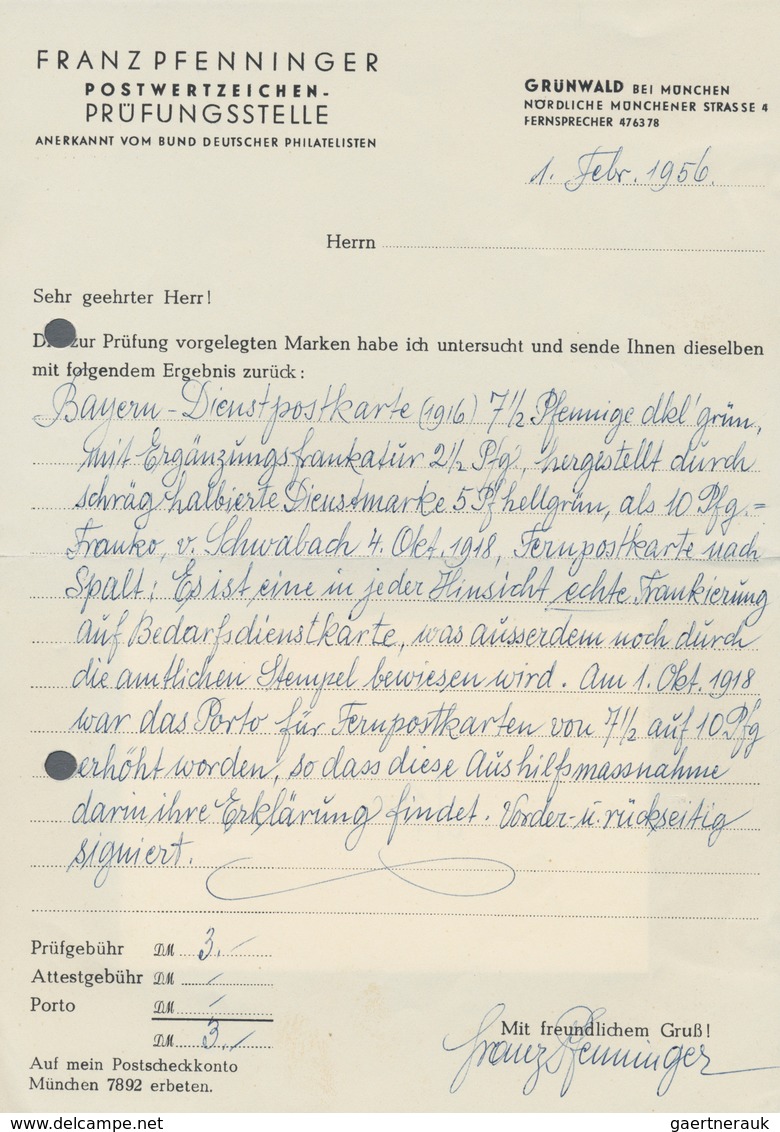 FRANZ PFENNINGER
POSTWERTZEICHEN-
PRÜFUNGSSTELLE
ANERKANNT VOM BUND DEUTSCHER PHILATELISTEN
GRÜNWALD BEI MÜNCHEN
NÖRDLICHE MÜNCHENER STRASSE 4
FERNSPRECHER 476378
1. Febr. 1956.
Herrn
Sehr geehrter Herr!
zur Prüfung vorgelegten Marken habe ich untersucht und sende Ihnen dieselben
mit folgendem Ergebnis zurück:
Bayern - Dienstpostkarte (1916) 7½ Pfennige dkl'grün,
mit Ergänzungsfrankatur 2½ Pfg, hergestellt durch
schräg halbierte Dienstmarke 5 Pf hellgrün, als 10 Pfg.=
Franko, v. Schwabach 4. Okt. 1918, Fernpostkarte nach
Spalt: Es ist eine in jeder Hinsicht echte Frankierung
auf Bedarfsdienstkarte, was ausserdem noch durch
die amtlichen Stempel bewiesen wird. Am 1. Okt. 1918
war das Porto für Fernpostkarten von 7½ auf 10 Pfg
erhöht worden, so dass diese Aushilfsmassnahme
darin ihre Erklärung findet. Vorder- u. rückseitig
signiert.
Prüfgebühr DM 3.-
Attestgebühr DM -
Porto DM -
DM 3.-
Mit freundlichem Gruß!
Franz Pfenninger
Auf mein Postscheckkonto
München 7892 erbeten.
gaertnerauk